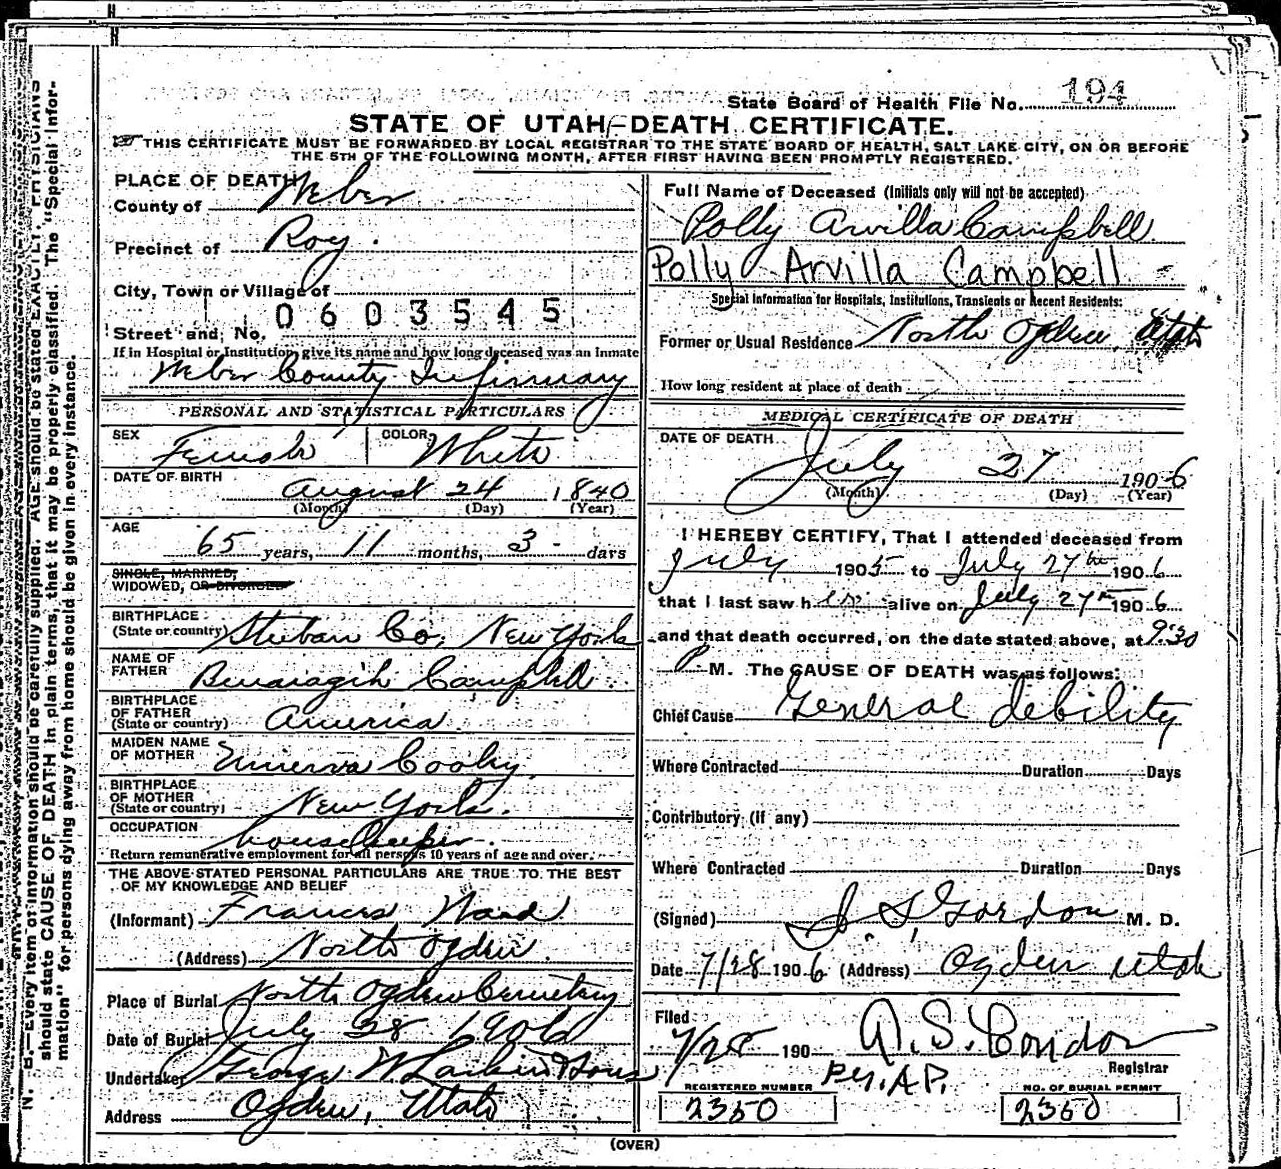 State Board of Health File No. 194
STATE OF UTAH-DEATH CERTIFICATE.
THIS CERTIFICATE MUST BE FORWARDED BY LOCAL REGISTRAR TO THE STATE BOARD OF HEALTH, SALT LAKE CITY, ON OR BEFORE
THE 5TH OF THE FOLLOWING MONTH, AFTER FIRST HAVING BEEN PROMPTLY REGISTERED.
PLACE OF DEATH
County of Weber
Precinct of Roy.
City, Town or Village of
0603545
Street and No.
If in Hospital or Institution, give its name and how long deceased was an Inmate
Weber County Infirmary
PERSONAL AND STATISTICAL PARTICULARS
SEX Female COLOR White
DATE OF BIRTH
August 24 1840
(Month) (Day) (Year)
AGE
65 years, 11 months, 3 days
SINGLE, MARRIED,
WIDOWED, OR DIVORCED
BIRTHPLACE
(State or country) Steuban Co, New York
NAME OF
FATHER Benaiagih Campbell
BIRTHPLACE
OF FATHER
(State or country) America
MAIDEN NAME
OF MOTHER Minerva Cooley
BIRTHPLACE
OF MOTHER
(State or country) New York.
OCCUPATION housekeeper.
Return remunerative employment for all persons 10 years of age and over.
THE ABOVE STATED PERSONAL PARTICULARS ARE TRUE TO THE BEST
OF MY KNOWLEDGE AND BELIEF
(Informant) Frances Ward
(Address) North Ogden.
Place of Burial North Ogden Cemetery
Date of Burial July 28 1906
Undertaker George W. Larkin & Sons
Address Ogden, Utah
Full Name of Deceased (Initials only will not be accepted)
Polly Arvilla Campbell.
Polly Arvilla Campbell
Special Information for Hospitals, Institutions, Transients or Recent Residents:
Former or Usual Residence North Ogden, Utah
How long resident at place of death
MEDICAL CERTIFICATE OF DEATH
DATE OF DEATH
July 27 1906
(Month) (Day) (Year)
I HEREBY CERTIFY, That I attended deceased from
July 1905 to July 27th 1906
that I last saw her alive on July 27th 1906
and that death occurred, on the date stated above, at 9:30
P M. The CAUSE OF DEATH was as follows:
Chief Cause General debility
Where Contracted Duration Days
Contributory (If any)
Where Contracted Duration Days
(Signed) J. S. Gordon M. D.
Date 7/28 1906 (Address) Ogden Utah
Filed
7/28 190 A. S. Condon
Registrar
Per. A.P.
REGISTERED NUMBER
2350
NO. OF BURIAL PERMIT
2350
(OVER)
N. B.—Every item of information should be carefully supplied. AGE should be stated EXACTLY. PHYSICIANS
should state CAUSE OF DEATH in plain terms, that it may be properly classified. The "Special Infor-
mation" for persons dying away from home should be given in every instance.